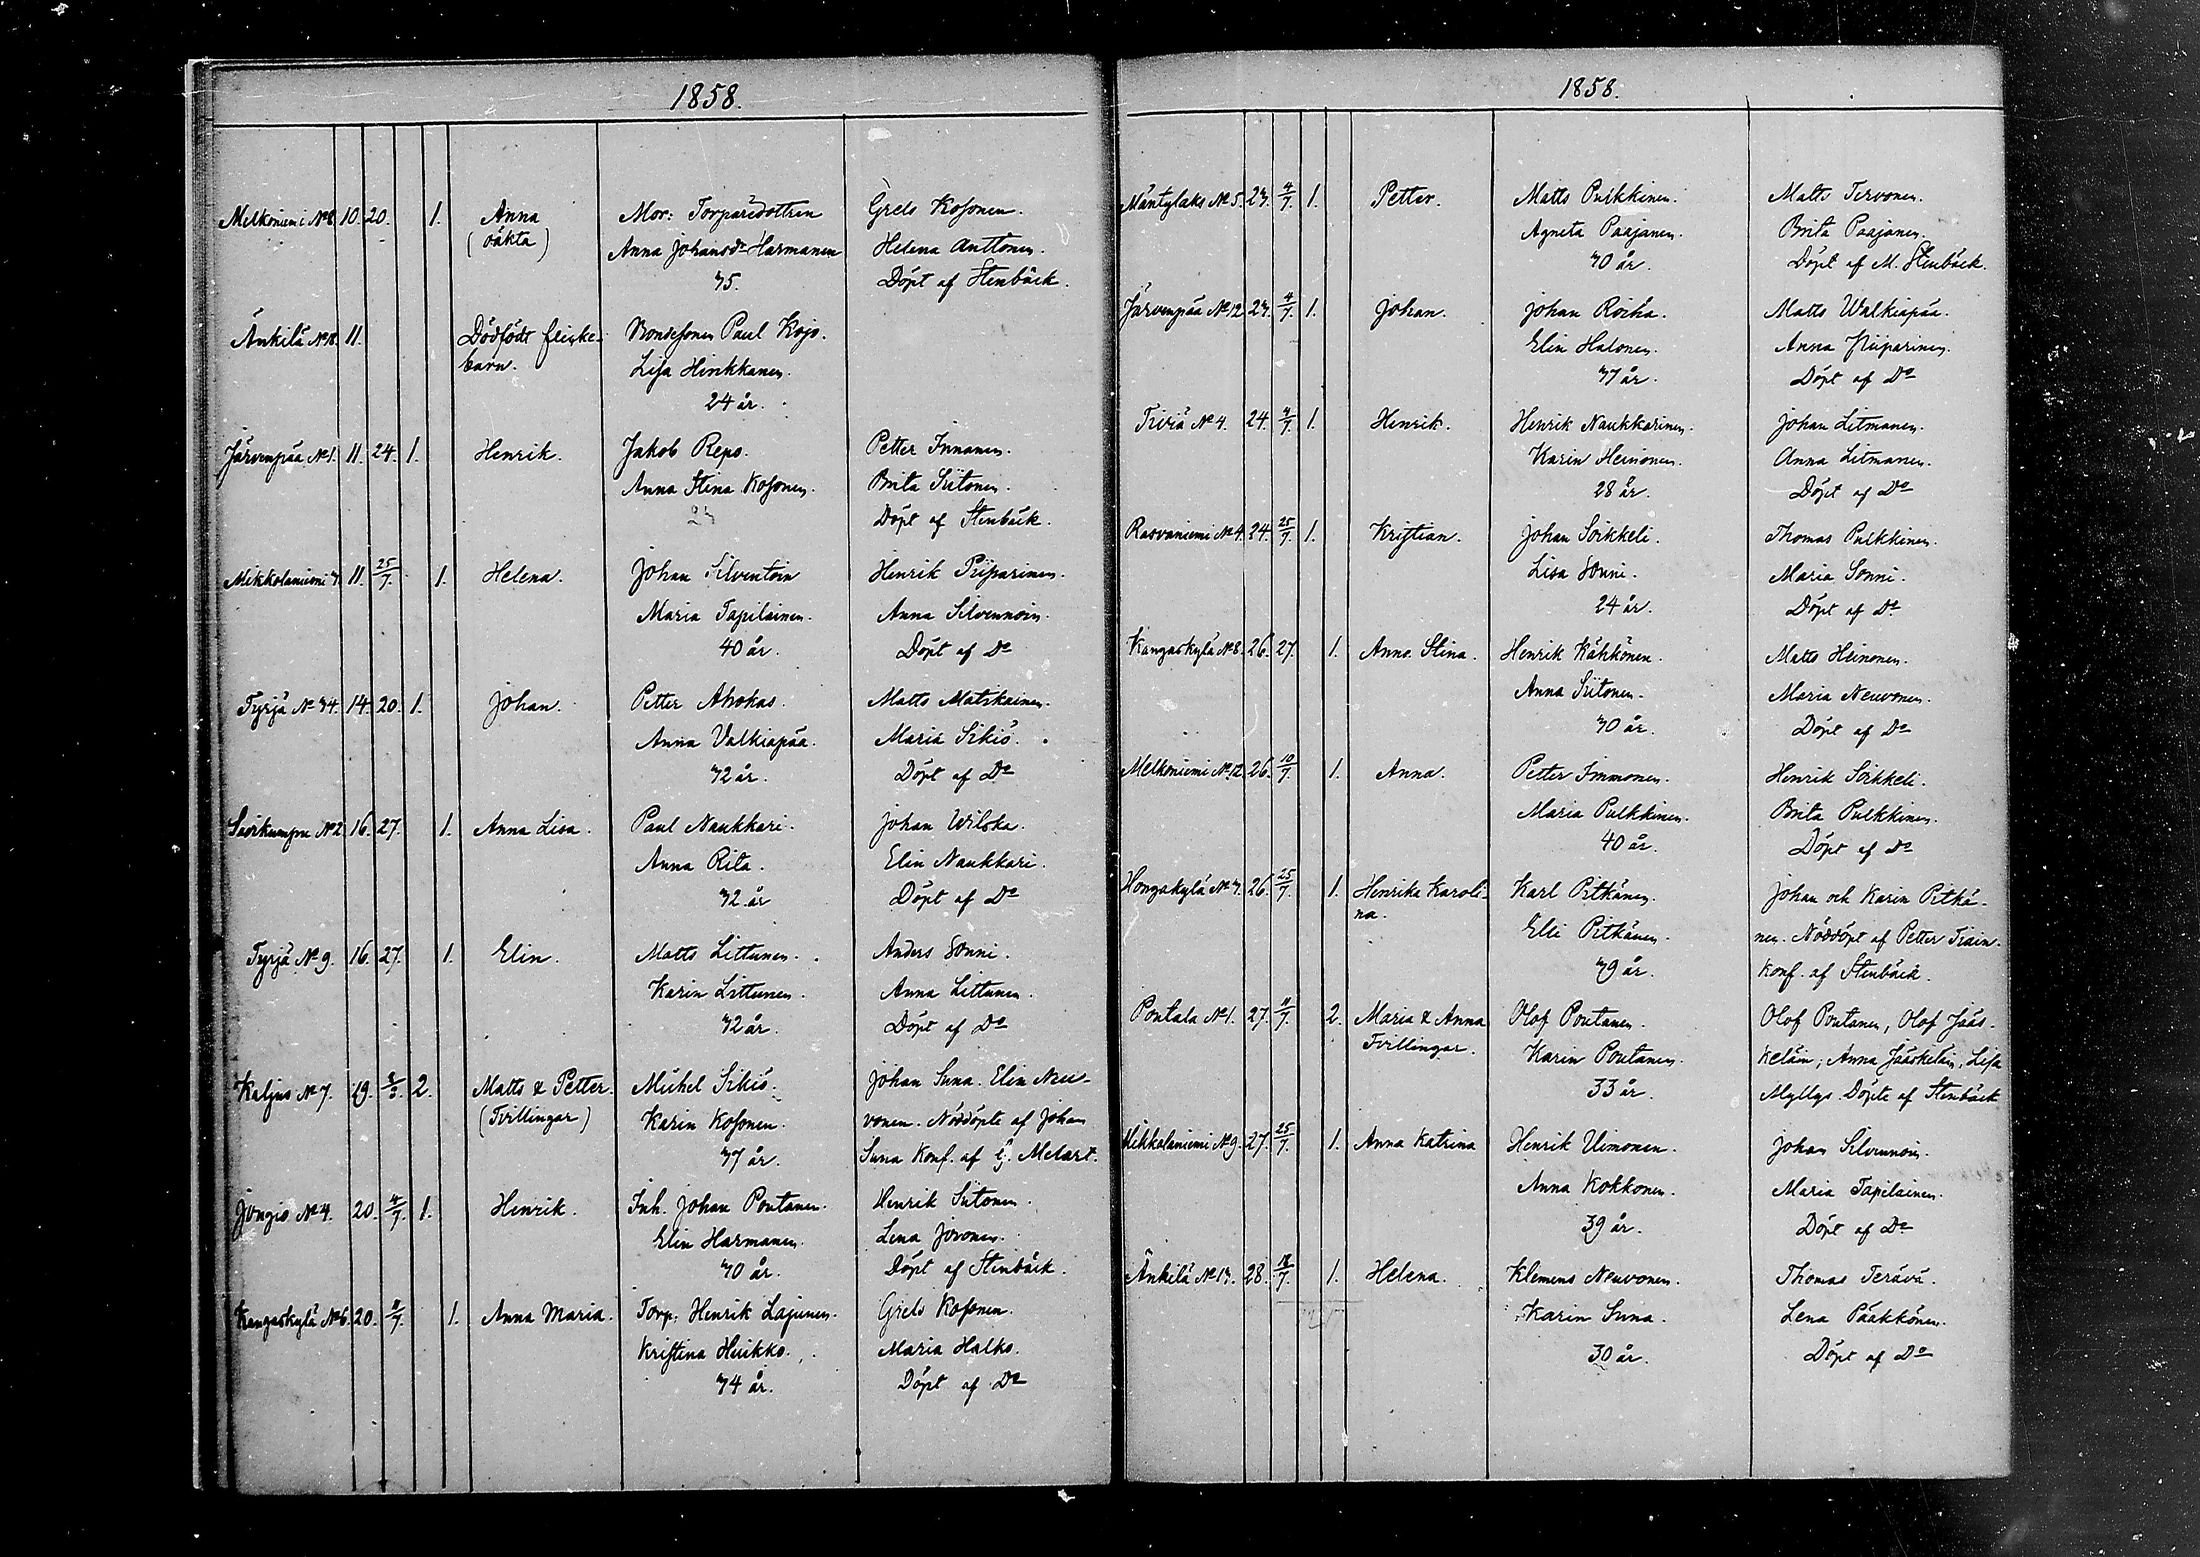 1858.
Melkoniemi No 8. 10. 20. 1. Anna Mor: Torparedottren Grels Kosonen.
(oäkta) Anna Johansdr Harmanen Helena Anttonen.
35. Döpt af Stenbäck.
Änkilä No 18. 11. Dödfödt flicke- Bondesonen Paul Kojo.
barn. Lisa Hinkkanen.
24 år.
Järvenpää No 1. 11. 24. 1. Henrik. Jakob Repo. Petter Innanen.
Anna Stina Kosonen. Brita Siitonen.
23 Döpt af Stenbäck.
Mikkolaniemi 3. 11. 25/7. 1. Helena. Johan Silventoin Henrik Piiparinen.
Maria Tapilainen. Anna Silvennoin.
40 år. Döpt af Do
Tyrjä No 34. 14. 20. 1. Johan. Petter Ahokas. Matts Matikainen.
Anna Valkiapää. Maria Sikiö.
32 år. Döpt af Do
No 2. 16. 27. 1. Anna Lisa. Paul Naukkari. Johan Wilska.
Anna Rita. Elin Naukkari.
32 år Döpt af Do
Tyrjä No 9. 16. 27. 1. Elin. Matts Littunen. Anders Sonni.
Karin Littunen. Anna Littunen.
32 år. Döpt af Do
Kaljus No 7. 19. 2. Matts & Petter. Michel Sikiö. Johan Suna. Elin Neu-
(Tvillingar) Karin Kosonen. vonen. Nöddöpte af Johan
37 år. Suna Konf. af Melart.
Jongio No 4. 20. 4/7. 1. Henrik. Inh. Johan Poutanen. Henrik Siitonen.
Elin Harmanen. Lena Joronen.
30 år. Döpt af Stenbäck.
Kangaskylä No 6. 20. 1. Anna Maria. Torp. Henrik Lajunen. Grels Kosonen.
Kristina Huikko. Maria Halko.
34 år. Döpt af Do
1858.
Mäntylaks No 5. 23. 4/7. 1. Petter. Matts Pulkkinen. Matts Tervonen.
Agneta Paajanen. Brita Paajanen.
30 år. Döpt af M. Stenbäck.
Järvenpää No 12 23. 4/7. 1. Johan. Johan Roiha. Matts Walkiapää.
Elin Halonen. Anna Piiparinen.
37 år. Döpt af Do
No 4. 24. 4/7. 1. Henrik. Henrik Naukkarinen. Johan Litmanen.
Karin Heinonen. Anna Litmanen.
28 år. Döpt af Do
Rasvaniemi No 4. 24. 25/7. 1. Kristian. Johan Soikkeli. Thomas Pulkkinen.
Lisa Sonni. Maria Sonni.
24 år. Döpt af Do
Kangaskylä No 8. 26. 27. 1. Anna Stina. Henrik Kähkönen. Matts Heinonen.
Anna Siitonen. Maria Neuvonen.
30 år. Döpt af Do
Melkoniemi No 12. 26. 10/7. 1. Anna. Petter Immonen. Henrik Soikkeli.
Maria Pulkkinen. Brita Pulkkinen.
40 år. Döpt af Do
No 3. 26. 25/7. 1. Henrika Karoli- Karl Pitkänen. Johan och Karin Pitkä-
na. Elli Pitkänen. nen. Nöddöpt af Petter
39 år. Konf. af Stenbäck.
Poutala No 1. 27. 11/7. 2. Maria & Anna Olof Poutanen. Olof Poutanen, Olof Jääs-
Tvillingar. Karin Poutanen. keläin; Anna Jääskeläin, Lisa
33 år. Myllys. Döpte af Stenbäck
Mikkolaniemi No 9. 27. 25/7. 1. Anna Katrina Henrik Uimonen. Johan Silvennoin.
Anna Kokkonen. Maria Tapilainen.
39 år. Döpt af Do
Änkilä No 13. 28. 18/7. 1. Helena. Klemens Neuvonen. Thomas Terävä.
Karin Suna. Lena Pääkkönen.
30 år. Döpt af Do